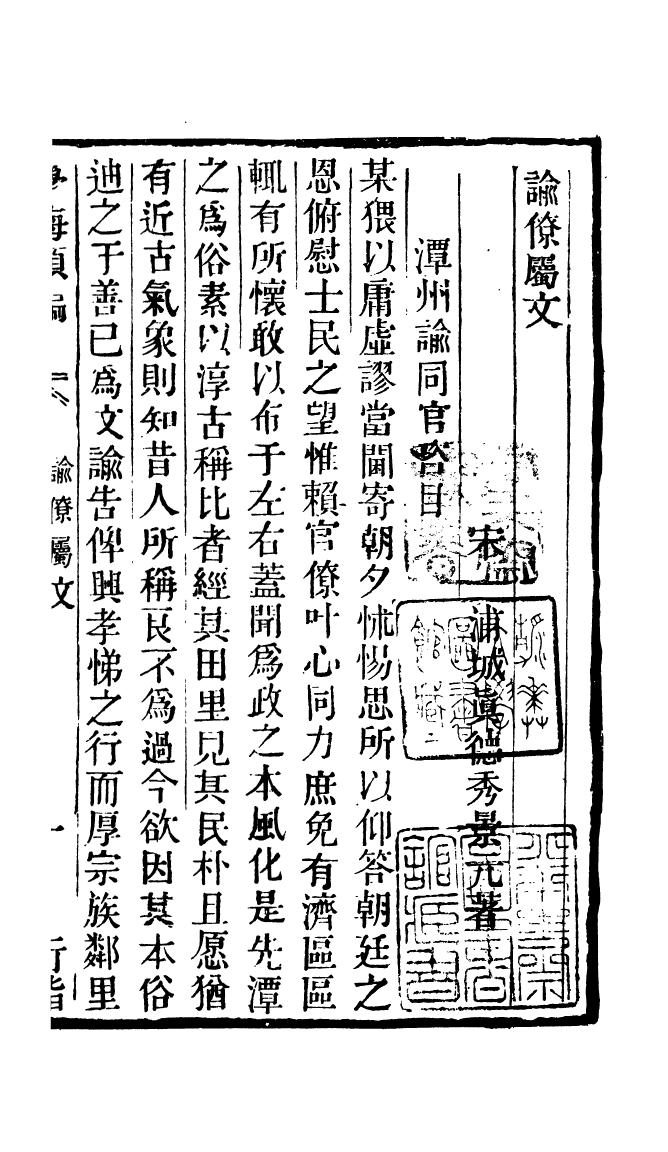 諭僚屬文
宋 浦城眞德秀景元著
潭州諭同官咨目
某猥以庸虛謬當閫寄朝夕怵惕思所以仰答朝廷之
恩俯慰士民之望惟賴官僚叶心同力庶免有濟區區
輒有所懷敢以布于左右蓋聞爲政之本風化是先潭
之爲俗素以淳古稱比者經其田里見其民朴且愿猶
有近古氣象則知昔人所稱良不爲過今欲因其本俗
迪之于善已爲文諭告俾興孝悌之行而厚宗族鄰里
學海類編 諭僚屬文 一 行詣